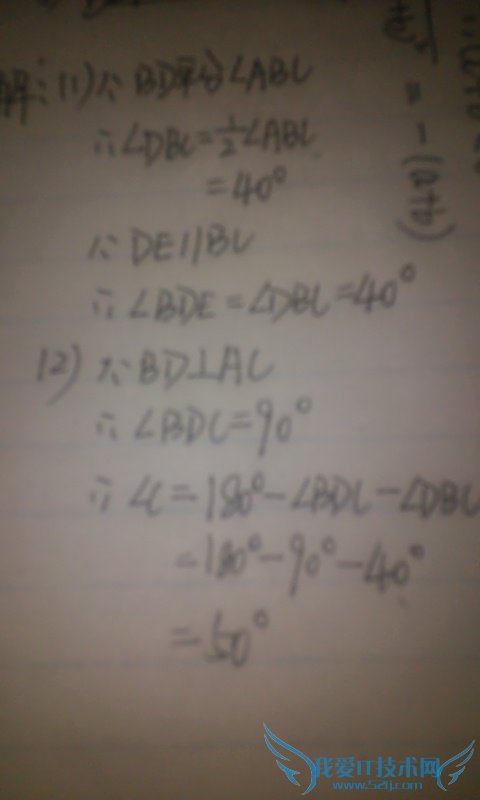 解:(1)∵BD平分∠ABC
∴∠DBC=½∠ABC
=40°
∵DE∥BC
∴∠BDE=∠DBC=40°
(2)∵BD⊥AC
∴∠BDC=90°
∴∠C=180°-∠BDC-∠DBC
=180°-90°-40°
=50°
=-(a+b)
我爱IT技术网
www.52ij.com